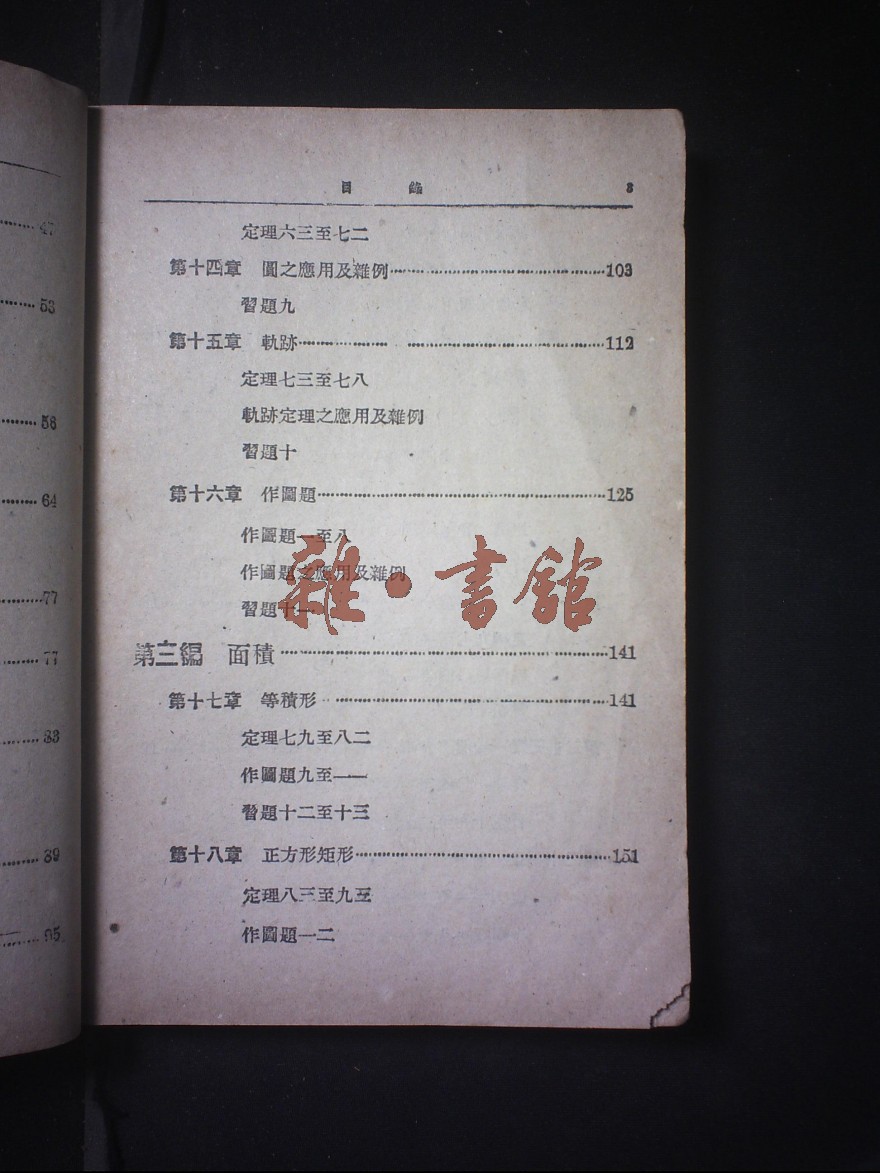 47
53
56
64
77
77
83
89
95
目 錄 3
定理六三至七二
第十四章 圓之應用及雜例……103
習題九
第十五章 軌跡……112
定理七三至七八
軌跡定理之應用及雜例
習題十
第十六章 作圖題……125
作圖題一至八
作圖題之應用及雜例
習題十一
雜·書館
第三編 面積……141
第十七章 等積形……141
定理七九至八二
作圖題九至一一
習題十二至十三
第十八章 正方形矩形……151
定理八三至九三
作圖題一二